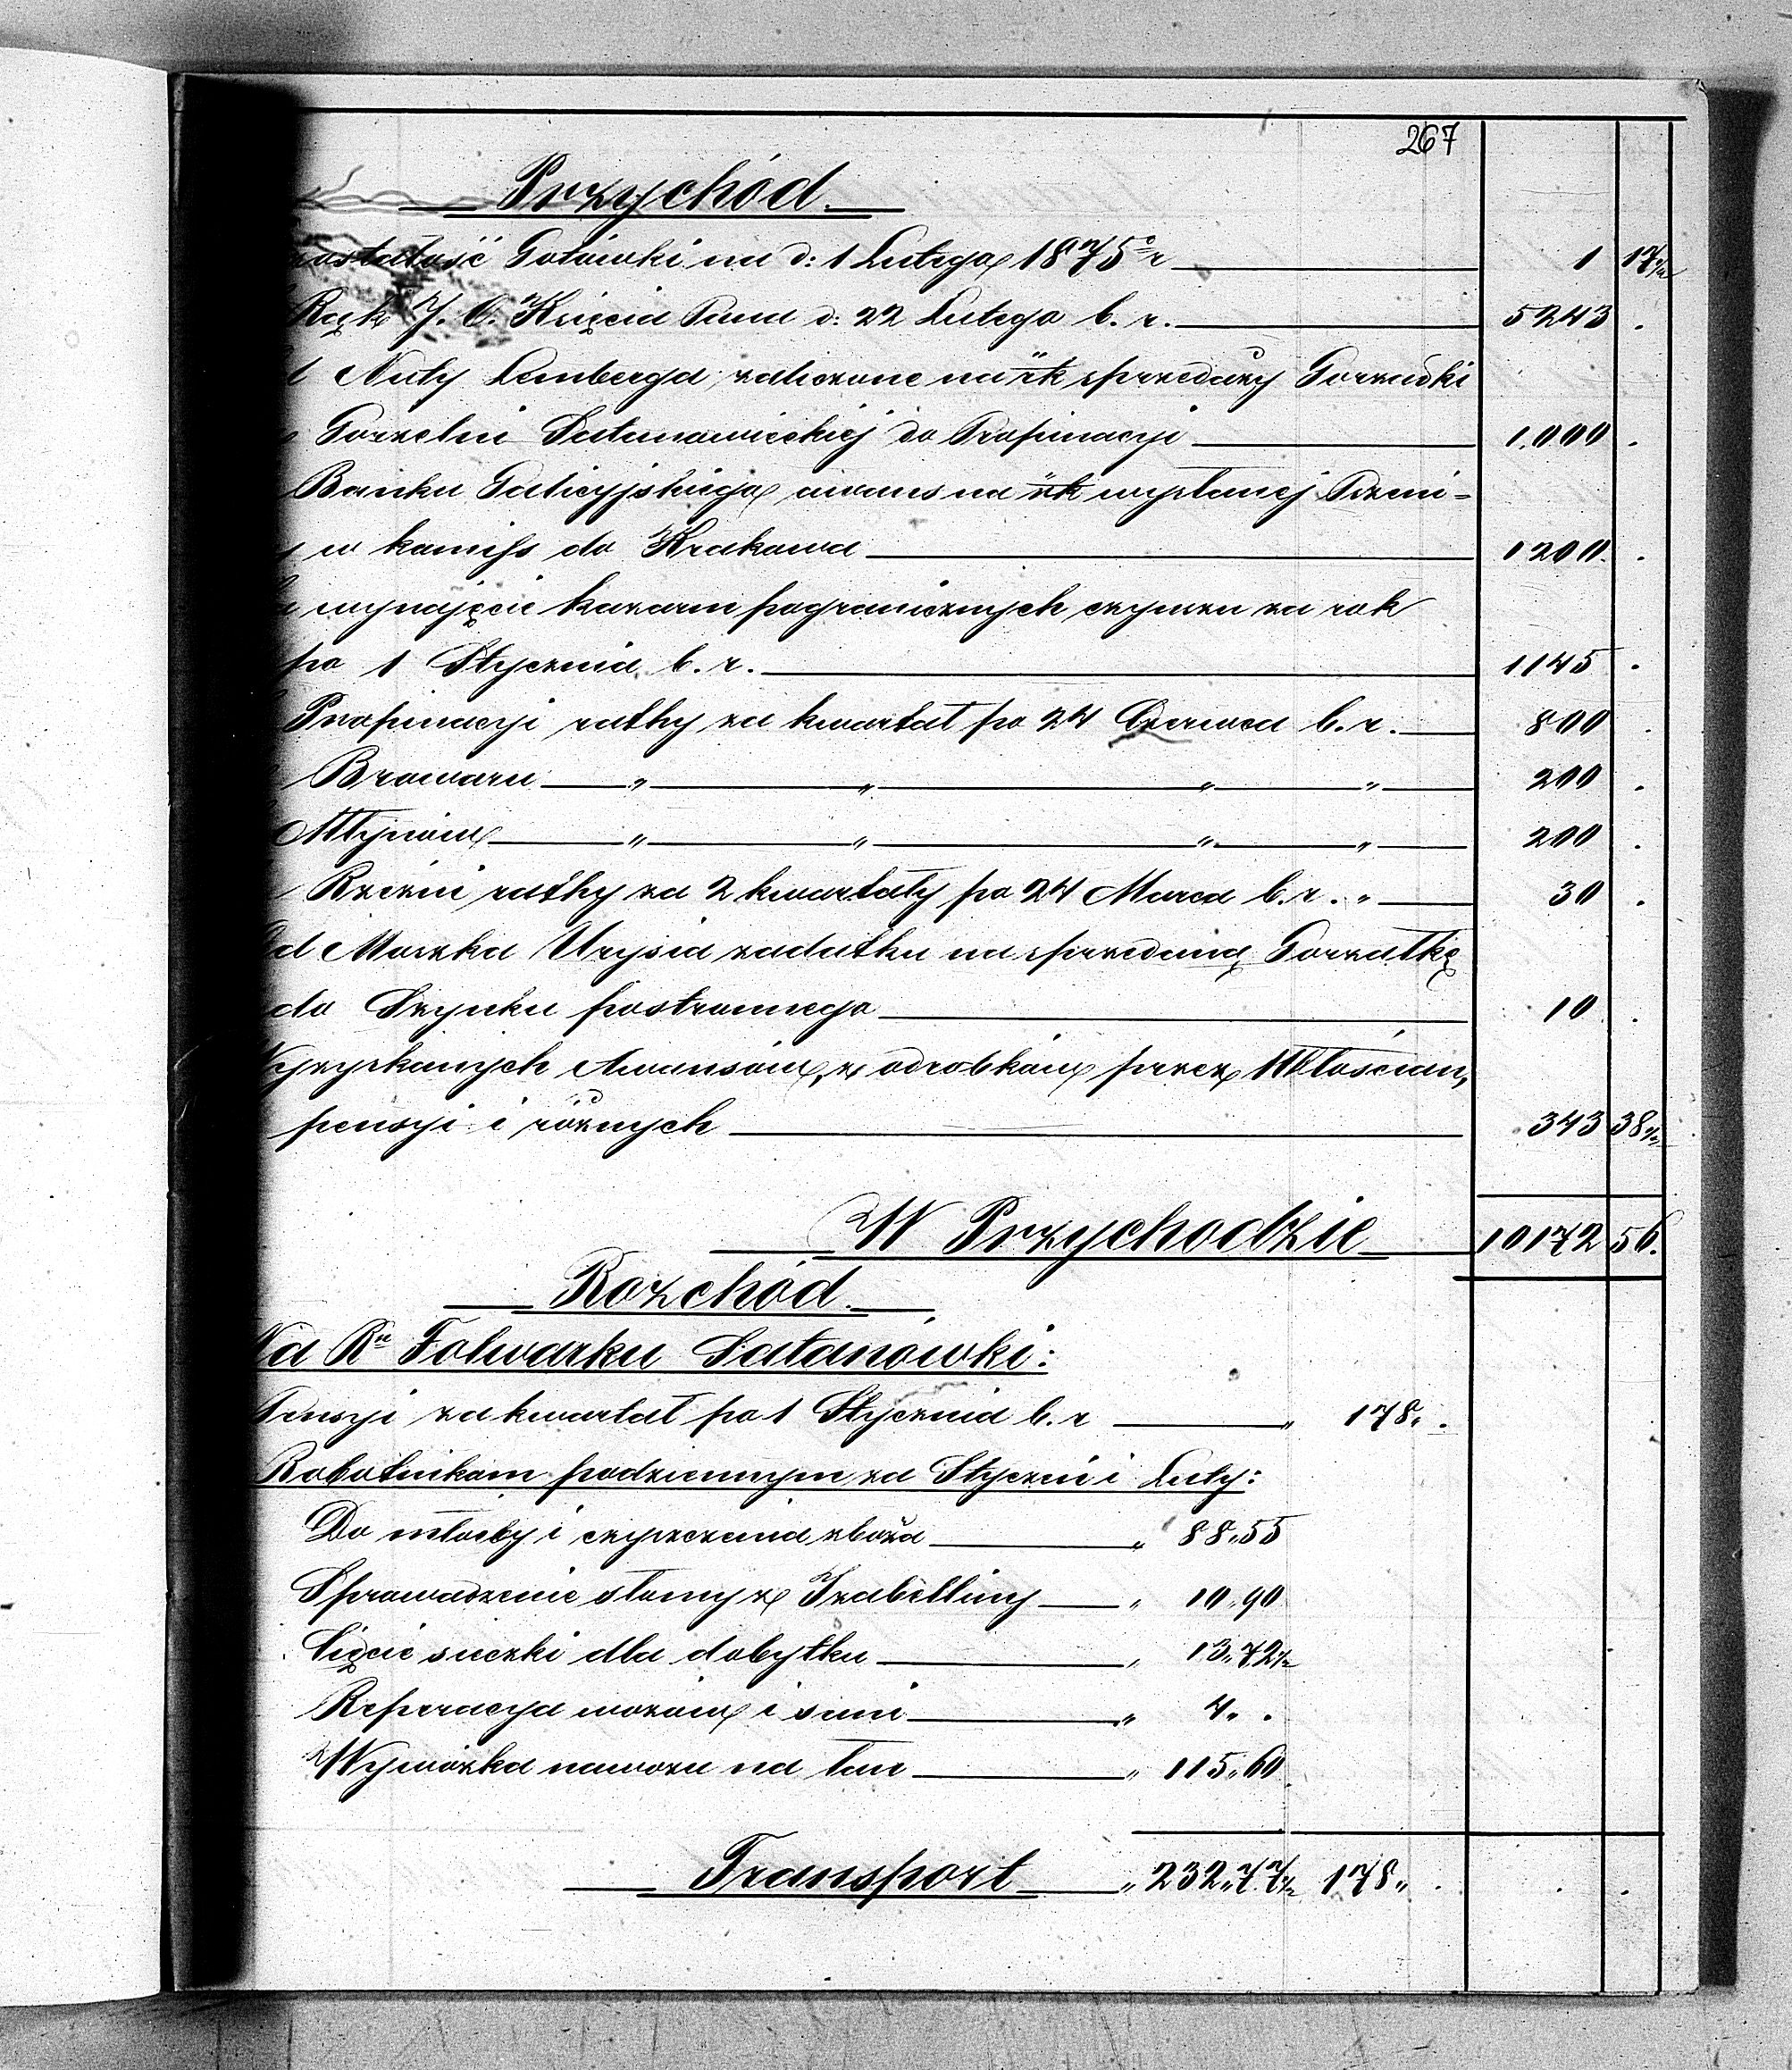 267
Przychód.
ostałość Gotówki na d: 1 Lutego 1875 r 1 17½
Rąk J. O. Księcia Pana d: 22 Lutego b. r. 5243 .
Nuty Lemberga zaliczone na rk sprzedaży Gorzałki
Gorzelni Satanowieckiej do Propinacyi 1.000 .
Banku Galicyjskiego awans na rk wysłanej Pszeni-
w komiss do Krakowa 1200 .
wynajęcie kazarm pogranicznych czynszu za rok
po 1 Stycznia b. r. 1145 .
Propinacyi ratky za kwartał po 24 Czerwca b. r. 800 .
Browaru " " " " 200 .
Młynów " " " " 200 .
Rzezni ratky za 2 kwartały po 24 Marca b. r. " 30 .
d Moszka Urysia zadatku na sprzedaną Gorzałkę
do Szynku postronnego 10 .
yzyskanych Awansów, z odrobków przez Włościan,
pensyi i różnych 343 38½
W Przychodzie 10172 56.
Rozchód.
Na Rn Folwarku Satanówki:
Pensyi za kwartał po 1 Stycznia b. r " 178 " .
Robotnikom podziennym za Styczeń i Luty:
Do młocby i czyszczenia zboża " 88 " 55
Sprowadzenie słomy z Izabelliny " 10 " 90
Cięcie sieczki dla dobytku " 13 " 72½
Reperacya wozów i sani " 4 " .
Wywózka nawozu na łan " 115 " 60
Transport " 232 " 77½ 178 " . . .